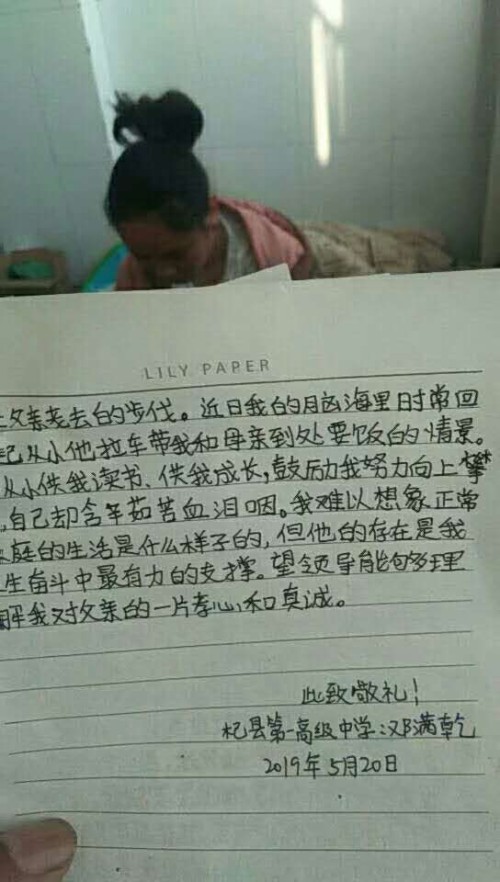 LILY PAPER
父亲老去的步伐。近日我的脑海里时常回
起从小他拉车带我和母亲到处要饭的情景。
从小供我读书、供我成长,鼓励我努力向上攀
自己却含辛茹苦血泪咽。我难以想象正常
庭的生活是什么样子的,但他的存在是我
生奋斗中最有力的支撑。望领导能够理
解我对父亲的一片孝心和真诚。
此致敬礼!
杞县第一高级中学:邓满乾
2019年5月20日